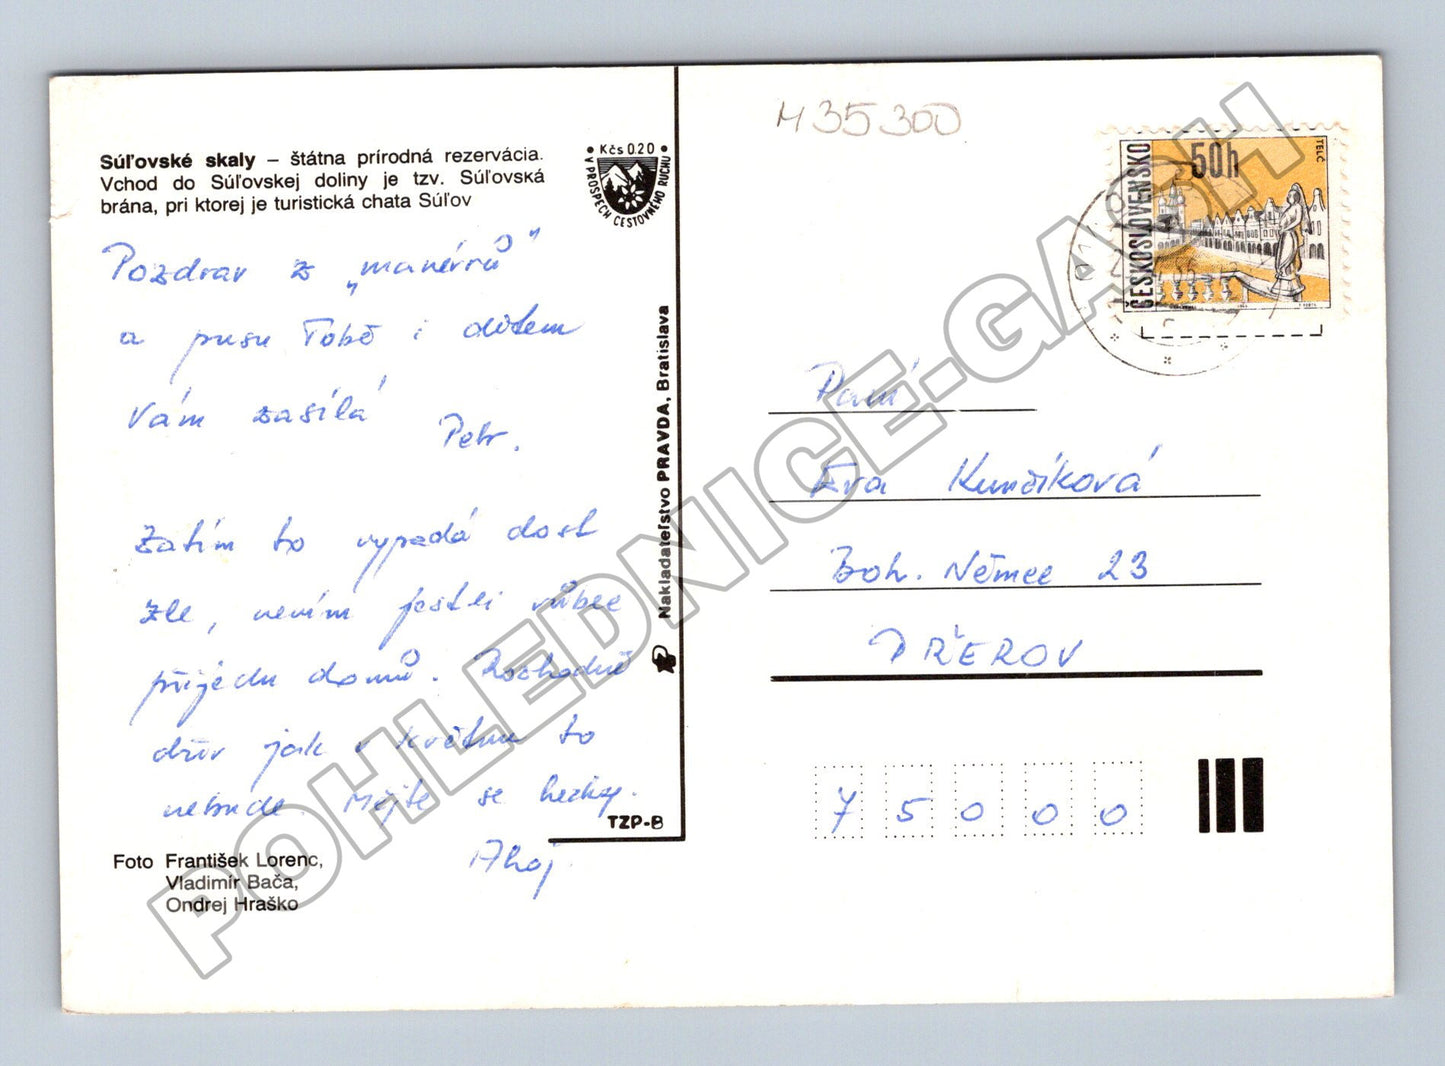 M35300
Súľovské skaly – štátna prírodná rezervácia.
Vchod do Súľovskej doliny je tzv. Súľovská
brána, pri ktorej je turistická chata Súľov
• Kčs 0.20 •
V PROSPECH CESTOVNÉHO RUCHU
Pozdrav z „manévrů“
a pusu Tobě i dětem
Vám zasílá
Petr.
Zatím to vypadá dost
zle, nevím jestli vůbec
přijedu domů. Rozhodně
dřív jak v květnu to
nebude. Mějte se hezky.
Ahoj.
Foto František Lorenc,
Vladimír Bača,
Ondrej Hraško
Nakladateľstvo PRAVDA, Bratislava
TZP-B
ČESKOSLOVENSKO
50h
TELČ
Paní
Eva Kunčíková
Boh. Němce 23
PŘEROV
75000
POHLEDNICE-GASH